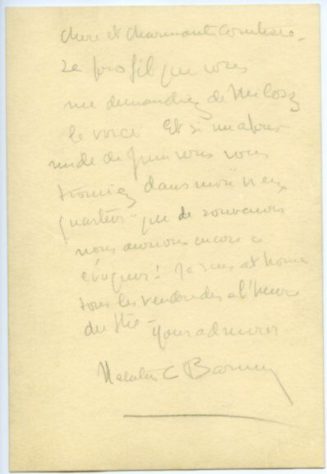 chere et charmante Comtesse -
Le profil que vous
me demandiez de Milosz
le voici Et si un après
midi de Juin vous vous
trouviez dans mon vieux
quartier - que de souvenirs
nous aurions encore a
évoquer! Je suis at home
tous les vendredis a l'heure
du thé -
Natalie C Barney